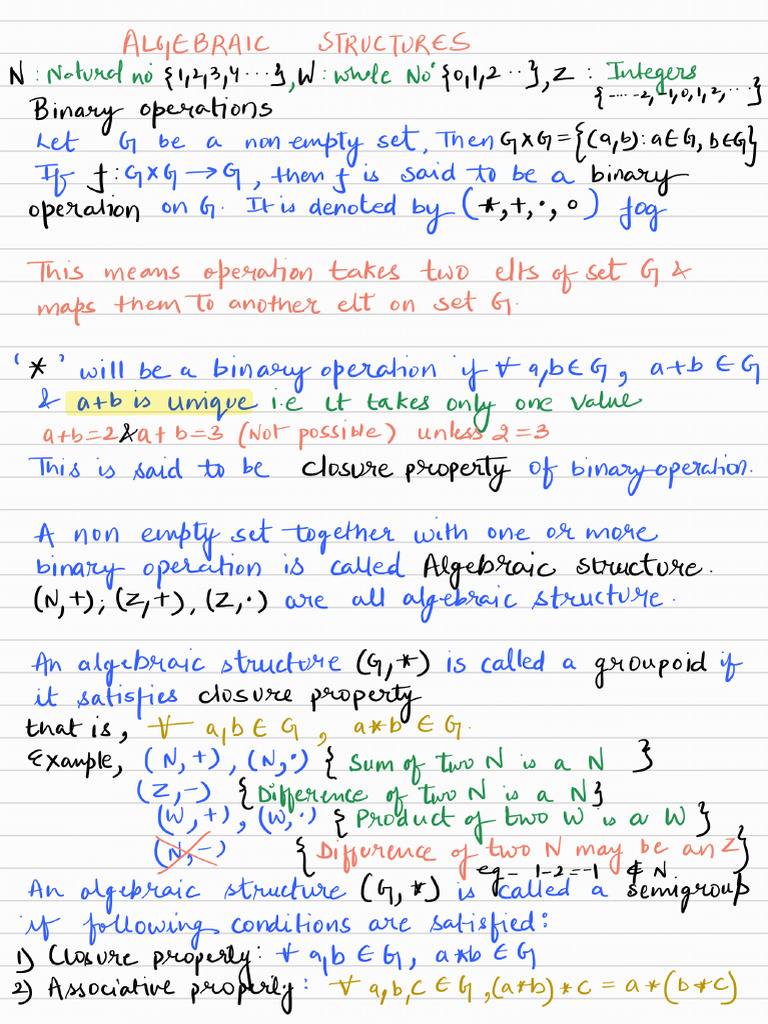 ALGEBRAIC STRUCTURES
N : Natural no {1,2,3,4 ...}, W : whole No {0,1,2 ..}, Z : Integers
{---- -2,-1,0,1,2, ...}
Binary operations
Let G be a non empty set, Then G×G = {(a,b): a∈G, b∈G}
If f : G×G → G, then f is said to be a binary
operation on G. It is denoted by (*, +, ·, ∘) fog
This means operation takes two elts of set G &
maps them to another elt on set G.
'*' will be a binary operation if ∀ a,b∈G, a+b ∈ G
& a+b is unique i.e it takes only one value
a+b=2 & a+b=3 (Not possible) unless 2=3
This is said to be closure property of binary operation.
A non empty set together with one or more
binary operation is called Algebraic structure.
(N,+), (Z,+), (Z,·) are all algebraic structure.
An algebraic structure (G,*) is called a groupoid if
it satisfies closure property
that is, ∀ a,b ∈ G, a*b ∈ G.
Example, (N,+), (N,·) { Sum of two N is a N }
(Z,-) {Difference of two N is a N}
(W,+), (W,·) { Product of two W is a W }
(N,-) { Difference of two N may be an Z}
eg- 1-2=-1 ∉ N
An algebraic structure (G,*) is called a semigroup
if following conditions are satisfied:
1) Closure property: ∀ a,b ∈ G, a*b ∈ G
2) Associative property: ∀ a,b,c ∈ G, (a*b)*c = a*(b*c)